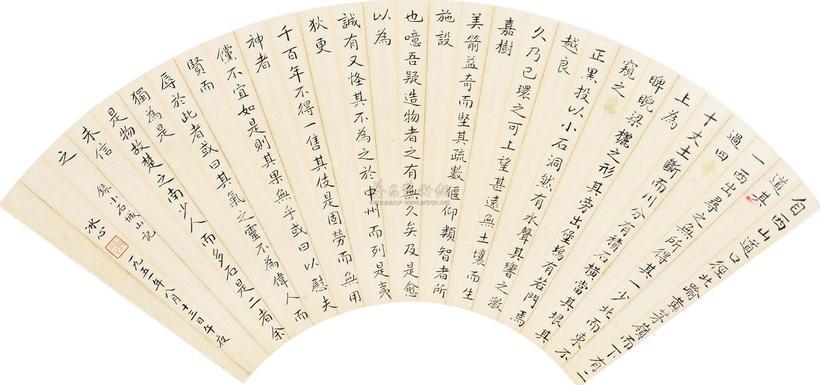 自西山道口徑北踰黃茅嶺而下有二
道其
一西出尋之無所得其一少北而東不
過四
十丈土斷而川分有積石橫當其垠其
上為
睥睨梁欐之形其旁出堡塢有若門焉
窺之
正黑投以小石洞然有水聲其響之激
越良
久乃已環之可上望甚遠無土壤而生
嘉樹
美箭益奇而堅其疏數偃仰類智者所
施設
也噫吾疑造物者之有無久矣及是愈
以為
誠有又怪其不為之於中州而列是夷
狄更
千百年不得一售其伎是固勞而無用
神者
儻不宜如是則其果無乎或曰以慰夫
賢而
辱於此者或曰其氣之靈不為偉人而
獨為是
是物故楚之南少人而多石是二者余
未信
之
錄小石城山記
冰心
一九五年八月十三日午夜